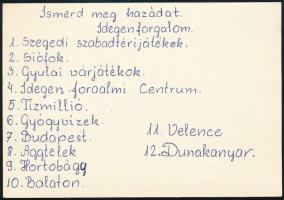 Ismerd meg hazádat.
Idegenforgalom.
1. Szegedi szabadtérijátékok.
2. Siófok.
3. Gyulai várjátékok.
4. Idegen forgalmi Centrum.
5. Tízmillió.
6. Gyógyvizek.
7. Budapest.
8. Aggtelek
9. Hortobágy
10. Balaton.
11. Velence
12. Dunakanyar.